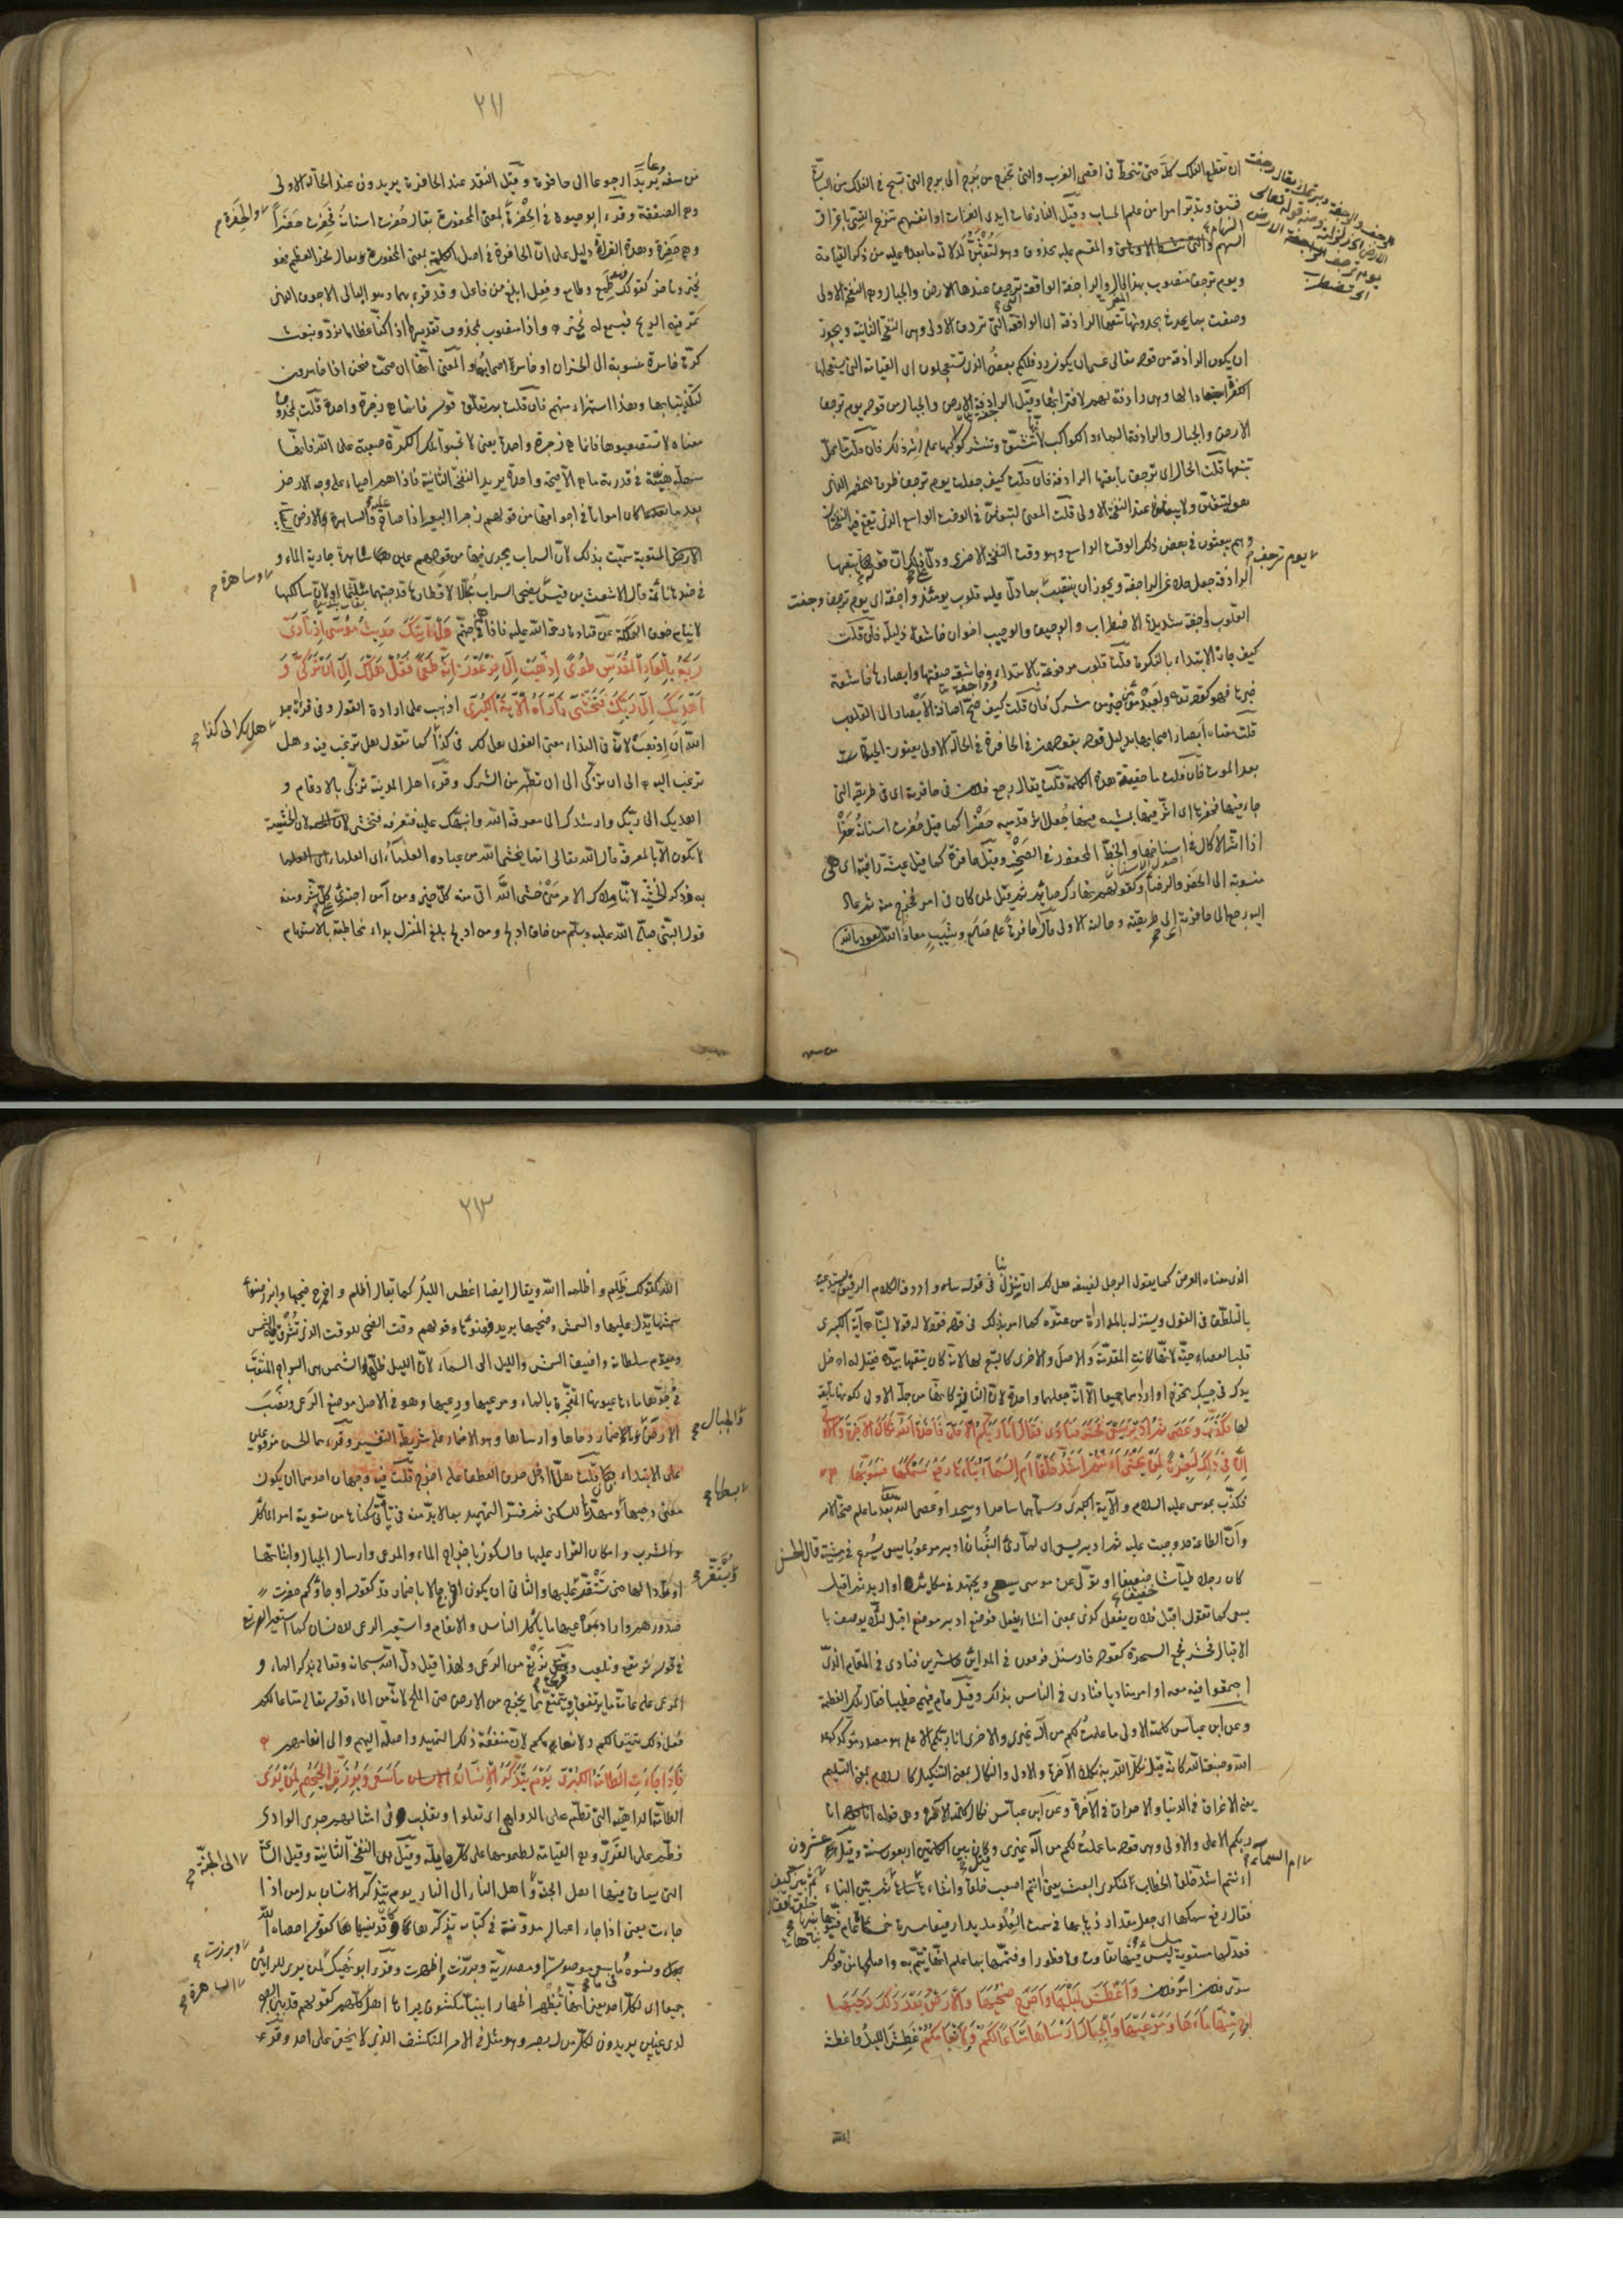 ان تقطع الفلك كله حتى تنحط فى اقصى الغرب والتى تخرج من برج الى برج التى تسبح فى الفلك من السيارة
فتسبق وتدبر امرا من علم الحساب وقيل النازعات ايدى الغزاة او انفسهم تنزع القسى باغراق
السهام والتى والمقسم عليه محذوف وهو لتبعثن لدلالة ما بعده عليه من ذكر القيامة
ويوم ترجف منصوب بهذا المضمر والراجفة الواقعة التى ترجف عندها الارض والجبال وهى النفخة الاولى
وصفت بما يحدث بحدوثها تتبعها الرادفة اى الواقعة التى تردف الاولى وهى النفخة الثانية ويجوز
ان يكون الرادفة من قوله تعالى عسى ان يكون ردف لكم بعض الذى تستعجلون اى القيامة التى يستعجلها
الكفرة استبعادا لها وهى رادفة لهم لاقترابها وقيل الراجفة الارض والجبال من قوله يوم ترجف
الارض والجبال والرادفة السماء والكواكب لانها تنشق وتنتثر كواكبها على اثر ذلك فان قلت ما محل
تتبعها قلت الحال اى ترجف تابعتها الرادفة فان قلت كيف جعلت يوم ترجف ظرفا للمضمر الذى
هو لتبعثن ولا يبعثون عند النفخة الاولى قلت المعنى لتبعثن فى الوقت الواسع الذى تقع فيه النفختان
وهم يبعثون فى بعض ذلك الوقت الواسع وهو وقت النفخة الاخرى ودل على ذلك ان قوله تتبعها
يوم ترجف
الرادفة جعل حالا عن الراجفة ويجوز ان ينتصب بما دل عليه قلوب يومئذ واجفة اى يوم ترجف وجفت
القلوب واجفة شديدة الاضطراب والوجيف والوجيب اخوان خاشعة ذليلة فان قلت
كيف جاز الابتداء بالنكرة قلت قلوب مرفوعة بالابتداء وواجفة صفتها وابصارها خاشعة
خبرها فهو كقوله تعالى ولعبد مؤمن خير من مشرك فان قلت كيف صح اضافة الابصار الى القلوب
قلت معناه ابصار اصحابها بدليل قوله يقولون فى الحافرة فى الحالة الاولى يعنون الحياة
بعد الموت فان قلت ما حقيقة هذه الكلمة قلت يقال رجع فلان فى حافرته اى فى طريقه التى
جاء فيها فحفرها اى اثر فيها بمشيه فيها جعل اثر قدميه حفرا كما قيل حفرت اسنانه حفرا
اذا اثر الاكال فى اسناخها والخط المحفور فى الصخر وقيل حافرة كما قيل عيشة راضية اى
منسوبة الى الحفر والرضا وكقولهم نهارك صائم ثم قيل لمن كان فى امر فخرج منه ثم عاد
اليه رجع الى حافرته اى طريقته وحالته الاولى قال احافرة على صلع وشيب معاذ الله
٢١١
من سفه وعار يريد ارجوعا الى حافرة وقيل النقد عند الحافرة يريدون عند الحالة الاولى
وهى الصفقة وقرء ابو حيوة فى الحفرة بمعنى المحفورة يقال حفرت اسنانه فحفرت حفرا
والحفرة
وهى حفرة وهذه القراءة دليل على ان الحافرة فى اصل الكلمة بمعنى المحفورة يقال نخر العظم فهو
نخر وناخر كقولك طمع فهو طمع وطامع وفعل ابلغ من فاعل وقد قرء بهما وهو البالى الاجوف الذى
تمر فيه الريح فيسمع له نخير واذا منصوب بمحذوف تقديره ااذا كنا عظاما نرد ونبعث
كرة خاسرة منسوبة الى الخسران او خاسرة اصحابها والمعنى انها ان صحت فنحن اذا خاسرون
لتكذيبنا بها وهذا استهزاء منهم فان قلت بم تعلق قوله فانما هى زجرة واحدة قلت بمحذوف
معناه لا تستصعبوها فانما هى زجرة واحدة يعنى لا تحسبوا تلك الكرة صعبة على الله فانها
سهلة هينة فى قدرته ما هى الا صيحة واحدة يريد النفخة الثانية فاذا هم احياء على وجه الارض
بعد ما كانوا امواتا فى اجوافها من قولهم زجر البعير اذا صاح عليه والساهرة
الارض المستوية سميت بذلك لان السراب يجرى فيها من قولهم عين ساهرة جارية الماء و
وساهرة
فى ضدها نائمة قال الاشعث بن قيس يضحى السراب مجللا لاقطارها قد جبتها متلثما او لان سالكها
لا ينام خوف الهلكة عن قتادة رحمة الله عليه فاذا هم فى جهنم هل اتيك حديث موسى اذ ناديه
ربه بالواد المقدس طوى اذهب الى فرعون انه طغى فقل هل لك الى ان تزكى و
اهديك الى ربك فتخشى فاراه الاية الكبرى اذهب على ارادة القول وفى قراءة عبد
الله ان اذهب لان فى النداء معنى القول هل لك فى كذا كما تقول هل ترغب فيه وهل
هل لك الى كذا
ترغب اليه الى ان تزكى الى ان تطهر من الشرك وقرء اهل المدينة تزكى بالادغام و
اهديك الى ربك وارشدك الى معرفة الله وانبهك عليه فتعرفه فتخشى لان الخشية
لا تكون الا بالمعرفة قال الله تعالى انما يخشى الله من عباده العلماء اى العلماء
به وذكر الخشية لانها ملاك الامر من خشى الله اتى منه كل خير ومن امن اجترئ على كل شر ومنه
قول النبى صلى الله عليه وسلم من خاف ادلج ومن ادلج بلغ المنزل بداء مخاطبته بالاستفهام
الذى معناه العرض كما يقول الرجل لضيفه هل لك ان تنزل بنا فى قوله ساه واردفه الكلام الرفيق
بالتلطف فى القول ويستنزله بالمداراة من عتوه كما امر بذلك فى قوله فقولا له قولا لينا الآية الكبرى
قلب العصا حية لانها كانت المقدمة والاصل والاخرى كالتبع لها لانه كان يتقيها بيده فقيل له ادخل
يدك فى جيبك تخرج او ارادهما جميعا الا انه جعلهما واحدة لان الثانية كانها من جملة الاولى لكونها تابعة
لها فكذب وعصى ثم ادبر يسعى فحشر فنادى فقال انا ربكم الاعلى فاخذه الله نكال الاخرة والاولى
ان فى ذلك لعبرة لمن يخشى ءانتم اشد خلقا ام السماء بناها رفع سمكها فسويها
فكذب بموسى عليه السلام والآية الكبرى وسماهما ساحرا وسحرا وعصى الله بعد ما علم صحة الامر
وان الطاعة قد وجبت عليه ثم ادبر يسعى اى لما رءى الثعبان ادبر مرعوبا يسعى يسرع فى مشيته قال الحسن
كان رجلا طياشا خفيفا او تولى عن موسى يسعى ويجتهد فى مكايدته او اريد ثم اقبل
يسعى كما تقول اقبل فلان يفعل كذى بمعنى انشا يفعل فوضع ادبر موضع اقبل لئلا يوصف با
الاقبال فحشر فجمع السحرة كقوله فارسل فرعون فى المدائن حاشرين فنادى فى المقام الذى
اجتمعوا فيه معه او امر مناديا فنادى فى الناس بذلك وقيل قام فيهم خطيبا فقال تلك العظيمة
وعن ابن عباس كلمته الاولى ما علمت لكم من اله غيرى والاخرى انا ربكم الاعلى نكال هو مصدر مؤكد كوعد
الله وصبغة الله كانه قيل نكل الله به نكال الآخرة والاولى والنكال بمعنى التنكيل كالسلام بمعنى التسليم
يعنى الاغراق فى الدنيا والاحراق فى الآخرة وعن ابن عباس نكال كلمتيه الآخرة وهى قوله انا
ربكم الاعلى والاولى وهى قوله ما علمت لكم من اله غيرى وكان بين الكلمتين اربعون سنة وقيل عشرون
ام السماء
ءانتم اشد خلقا الخطاب لمنكرى البعث يعنى ءانتم اصعب خلقا وانشاء ام السماء ثم بين البناء
ثم بين كيف خلقها فقال
فقال رفع سمكها اى جعل مقدار ذهابها فى سمت العلو مديدا رفيعا مسيرة خمسمائة عام فسويها
فعدلها مستوية ملساء ليس فيها تفاوت ولا فطور او فتممها بما علم انها تتم به واصلحها من قولك
سوى فلان امر فلان واغطش ليلها واخرج ضحيها والارض بعد ذلك دحيها
اخرج منها ماءها ومرعيها والجبال ارسيها متاعا لكم ولانعامكم غطش الليل واغطشه
٢١٣
الله كقولك ظلم واظلمه الله ويقال ايضا اغطش الليل كما يقال اظلم واخرج ضحيها وابرز ضوء
شمسها يدل عليها والشمس وضحيها يريد وضوئها وقولهم وقت الضحى للوقت الذى تشرق فيه الشمس
ويقوم سلطانه واضيف الشمس والليل الى السماء لان الليل ظلها والشمس هى السراج المثقب
فى جوها ماءها عيونها المتفجرة بالماء ومرعيها ورعيها وهو فى الاصل موضع الرعى ونصب
والجبال
الارض باضمار دحاها وارساها وهو الاضمار على شريطة التفسير وقرءهما الحسن مرفوعين
على الابتداء فان قلت هلا ادخل حرف العطف على اخرج قلت فيه وجهان احدهما ان يكون
بسطها
معنى دحيها ومهدها للسكنى ثم فسر التمهيد بما لابد منه فى تاتى سكناها من تسوية امر الماكل
والمشرب وامكان القرار عليها والسكون باخراج الماء والمرعى وارساء الجبال واثباتها
ويستقر
اوتادا لها حتى تستقر عليها والثانى ان يكون اخرج حالا باضمار قد كقوله او جاؤكم حصرت
صدورهم واراد بمرعيها ما ياكل الناس والانعام واستعير الرعى للانسان كما استعير الرتع
فى قوله نرتع ونلعب وقرئ نرتع من الرعى ولهذا قيل دل الله سبحانه وتعالى بذكر الماء و
المرعى على عامة ما يرتفق به ويتمتع مما يخرج من الارض حتى الملح لانه من الماء قوله تعالى متاعا لكم
فعل ذلك تمتيعا لكم ولانعامكم لان منفعة ذلك التمهيد واصلة اليهم والى انعامهم
فاذا جاءت الطامة الكبرى يوم يتذكر الانسان ما سعى وبرزت الجحيم لمن يرى
الطامة الداهية التى تطم على الدواهى اى تعلوا وتغلب وفى امثالهم جرى الوادى
فطم على القرى وهى القيامة لطمومها على كل هايلة وقيل هى النفخة الثانية وقيل الساعة
الى الجنة
التى يساق فيها اهل الجنة واهل النار الى النار يوم يتذكر الانسان بدل من اذا
جاءت يعنى اذا جاء اعماله مدونة فى كتابه تذكرها وكان قد نسيها كقوله احصاه الله
وبرزت
ونسوه وما سعى موصولة او مصدرية وبرزت اظهرت وقرء ابو نهيك لمن يرى للرائين
الساهرة
جميعا اى لكل احد يعنى انها تظهر اظهارا بينا مكشوفا يراها اهل الساهرة كلهم كقولهم قد بين الصبح
لذى عينين يريدون لكل من له بصر وهو مثل فى الامر المنكشف الذى لا يخفى على احد وقرء